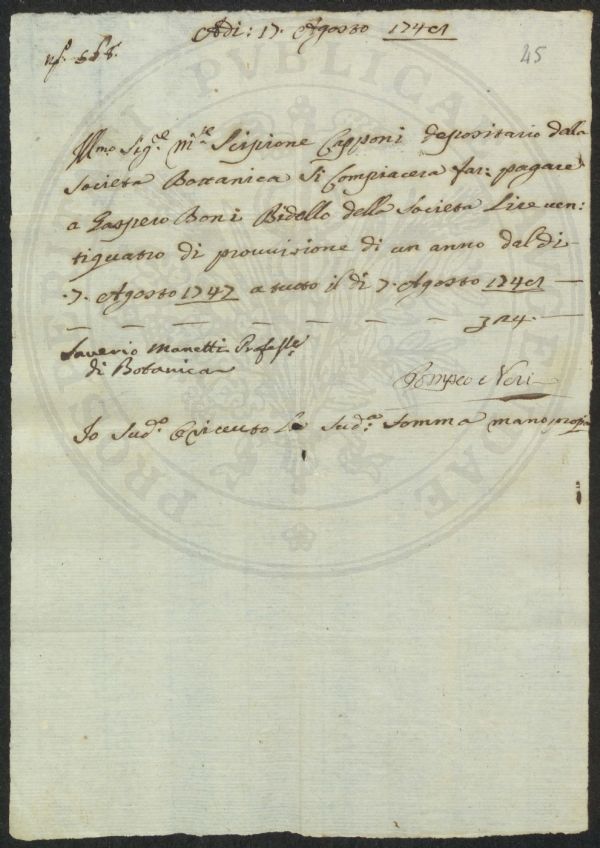 Adi: 17. Agosto 1748
45
Ill.mo Sig.re M.se Scipione Capponi depositario dalla
Societa Bottanica Si Compiacera far: pagare
a Gaspero Boni Bidello della Societa Lire ven:
tiquatro di provvisione di un anno dal di
.7. Agosto 1747 a tutto il di 7. Agosto 1748 —
24. —
Saverio Manetti Profess.re
di Botanica
Pompeo Neri
Io Sud.o ò riceuto la Sud.a Somma mano propia